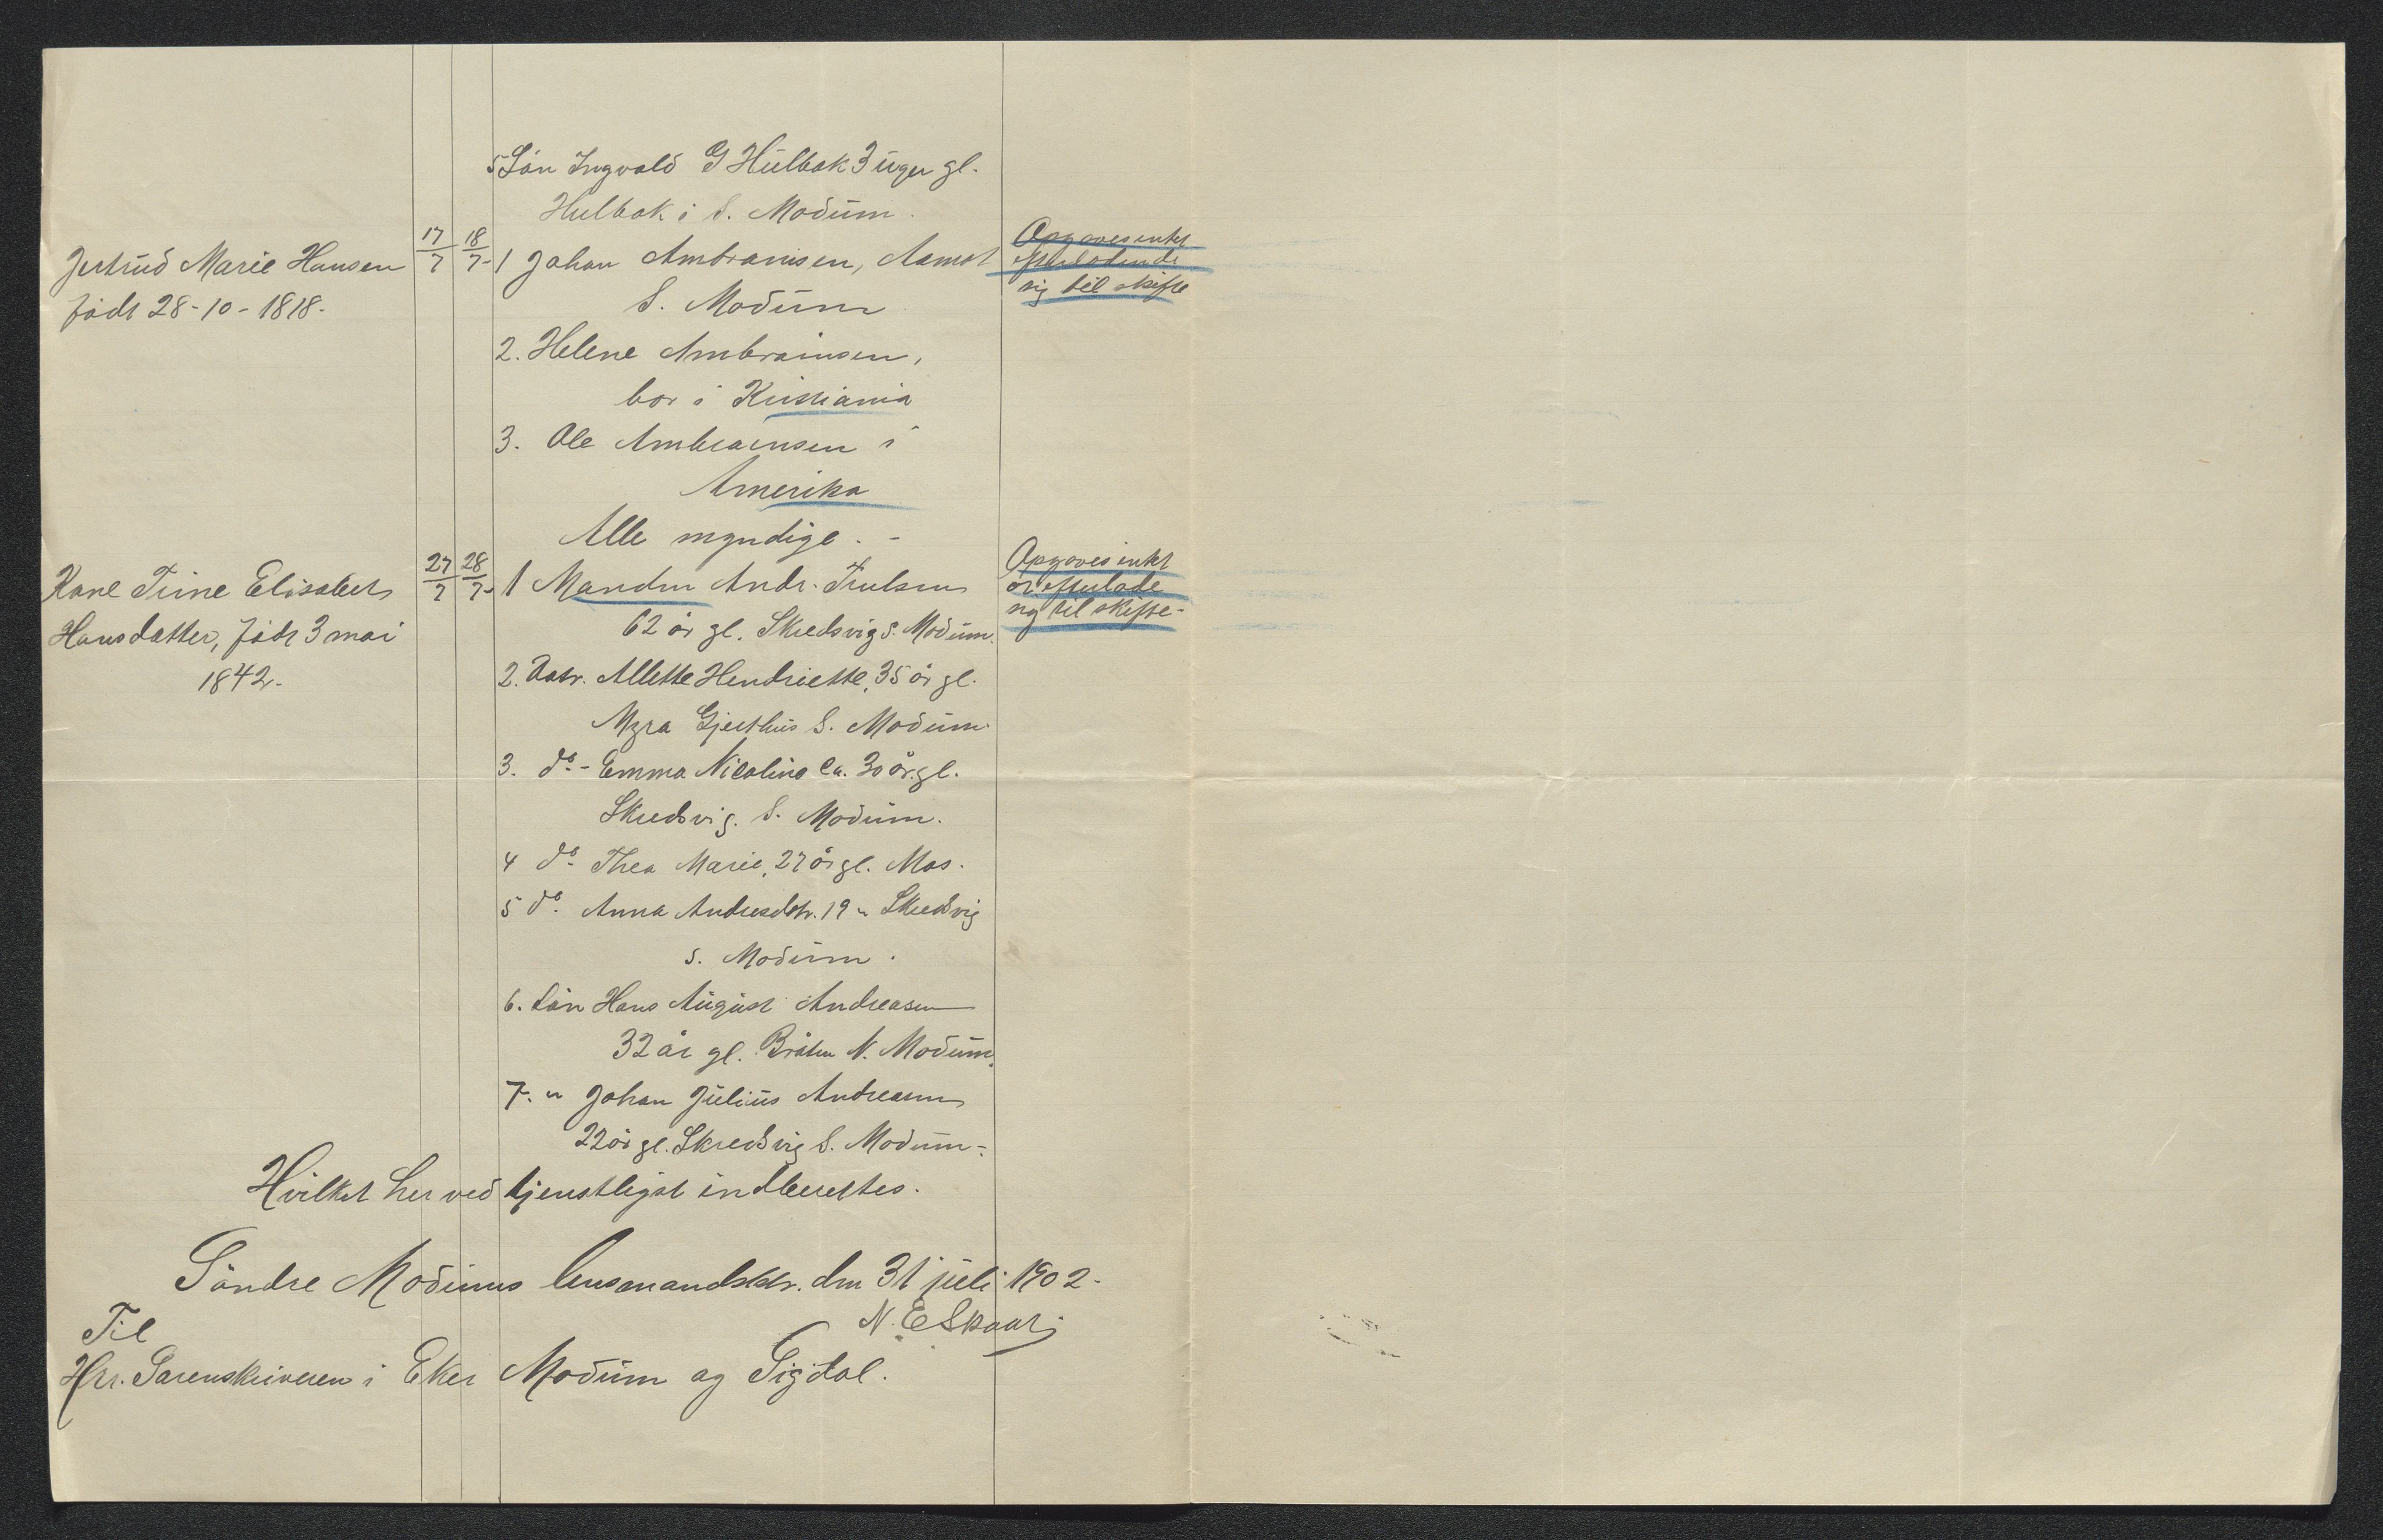 5 Sön Ingvald G Hulbak 3 uger gl.
Hulbak i S. Modum.
Jertrud Marie Hansen
född 28-10-1818.
17/7 18/7
1 Johan Ambrauisen, Aamot
S. Modum
Opgaves intet
efterladende
sig til skifte
2. Helene Ambrainsen,
bor i Kristiania
3. Ole Ambrainsen i
Amerika
Alle myndige. -
Kone Trine Elisabeth
Hansdatter, född 3 mai
1842.
27/7 28/7
1 Manden Andr. Trulsen
62 år gl. Skredsvig S. Modum.
Opgaves intet
at efterlade
sig til skifte-
2. Datr. Allette Hendriette, 35 år gl.
Myra Gjesthus S. Modum.
3. do - Emma Nicoline ca. 30 år gl.
Skredsvig. S. Modum.
4 do Thea Marie, 27 år gl. Mas.
5 do. Anna Andresdtr. 19 " Skredsvig
S. Modum.
6. Sön Hans August Andreasen
32 år gl. Bråten N. Modum.
7. " Johan Julius Andreasen
22 år gl. Skredsvig S. Modum-
Hvilket herved tjenstligst indberettes.
Söndre Modums lensmandsktr. den 31 juli 1902-
N. E Skaar
Til
Hrr. Sorenskriveren i Eker Modum og Sigdal.